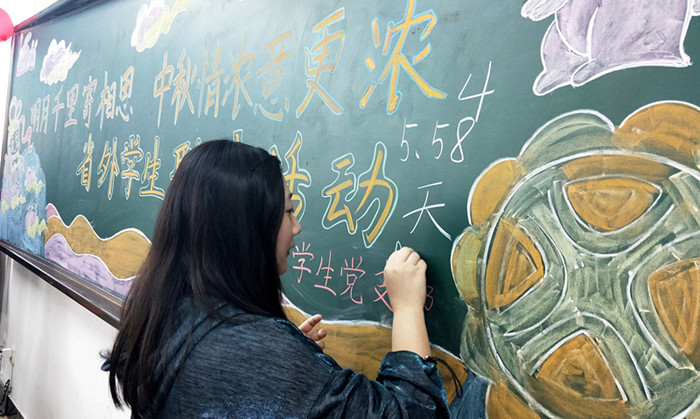 明月千里寄相思 中秋情浓意更浓
省外学生 活动
学生党
4
5.58
天